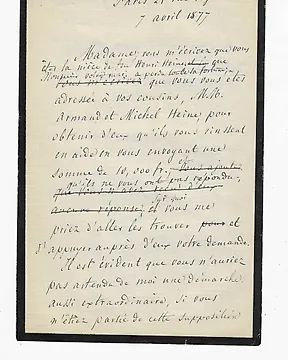 7 avril 1877
Madame, vous m'écrivez que vous
êtes la nièce de feu Henri Heine, que
vous vous êtes
adressée à vos cousins, MM.
Armand et Michel Heine, pour
obtenir d'eux qu'ils vous vinssent
en aide en vous envoyant une
somme de 10,000 fr.
qu'ils ne vous ont pas répondu,
aucune réponse, et vous me
priez d'aller les trouver pour et
d'appuyer auprès d'eux votre demande.
Il est évident que vous n'auriez
pas attendu de moi une démarche
aussi extraordinaire, si vous
n'étiez partie de cette supposition